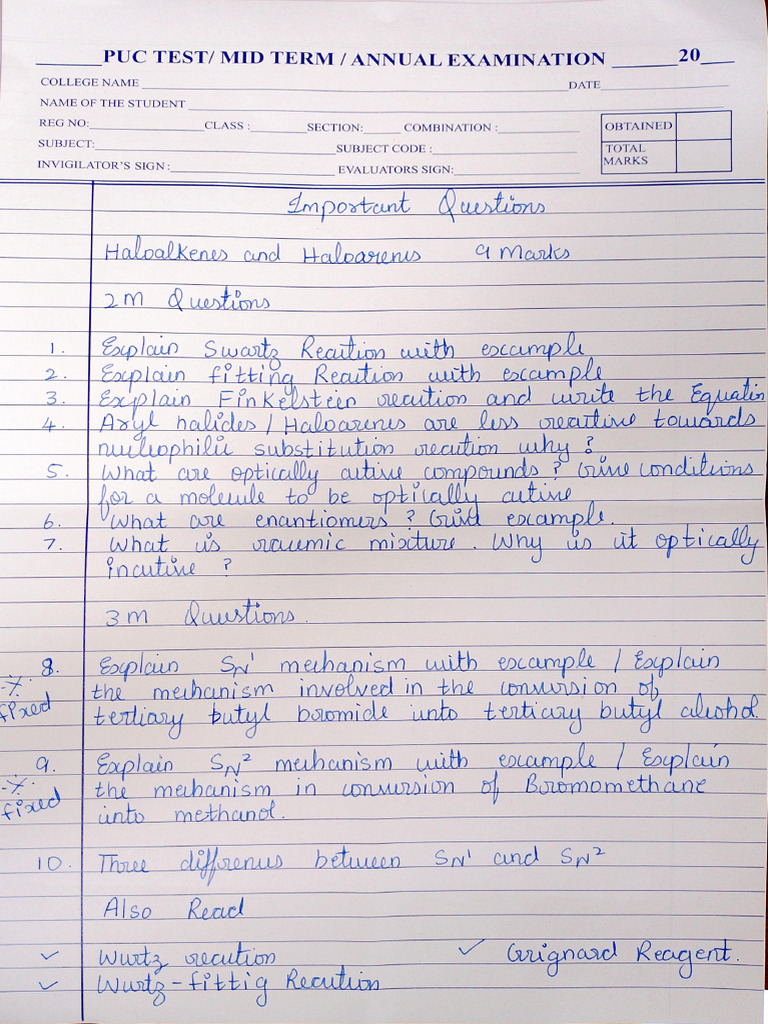 PUC TEST/ MID TERM / ANNUAL EXAMINATION 20
COLLEGE NAME DATE
NAME OF THE STUDENT
REG NO: CLASS : SECTION: COMBINATION : OBTAINED
SUBJECT: SUBJECT CODE : TOTAL MARKS
INVIGILATOR'S SIGN : EVALUATORS SIGN:
Important Questions
Haloalkenes and Haloarenes 9 Marks
2M Questions
1. Explain Swartz Reaction with example
2. Explain fitting Reaction with example
3. Explain Finkelstein reaction and write the Equatin
4. Aryl halides / Haloarenes are less reactive towards
nucleophilic substitution reaction why ?
5. What are optically active compounds ? Give conditions
for a molecule to be optically active
6. What are enantiomers ? Give example.
7. What is racemic mixture. Why is it optically
inactive ?
3M Questions.
8. Explain SN1 mechanism with example / Explain
the mechanism involved in the conversion of
fixed tertiary butyl bromide into tertiary butyl alcohol.
9. Explain SN2 mechanism with example / Explain
the mechanism in conversion of Bromomethane
fixed into methanol.
10. Three differenes between SN1 and SN2
Also Read
✓ Wurtz reaction ✓ Grignard Reagent.
✓ Wurtz-fittig Reaction